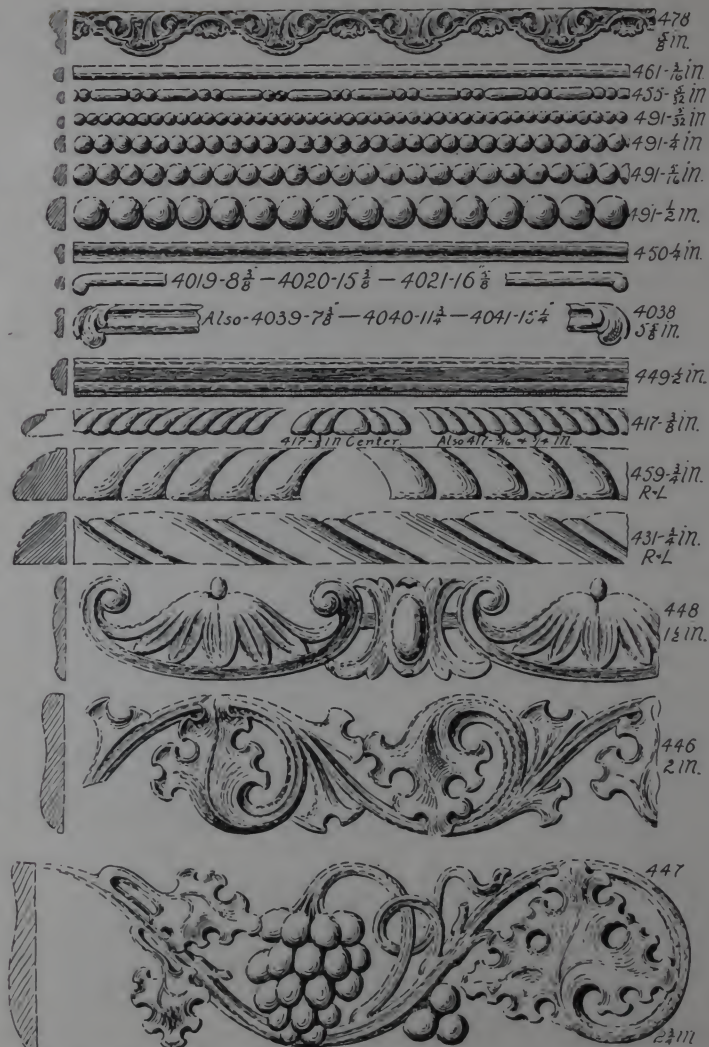 478
5/8 in.
461-3/16 in
455-5/32 in
491-5/32 in
491-1/4 in
491-5/16 in
491-1/2 in.
450 1/4 in.
4019-8 3/8 — 4020-15 3/8 — 4021-16 5/8"
Also-4039-7 1/8" — 4040-11 3/4 — 4041-15 1/4"
4038
5 5/8 in.
449 1/2 in.
417-3/8 in.
417-3/8 in Center. Also 417-5/16 & 1/4 in.
459-3/4 in.
R-L
431-3/4 in.
R-L
448
1 1/2 in.
446
2 in.
447
2 3/4 in